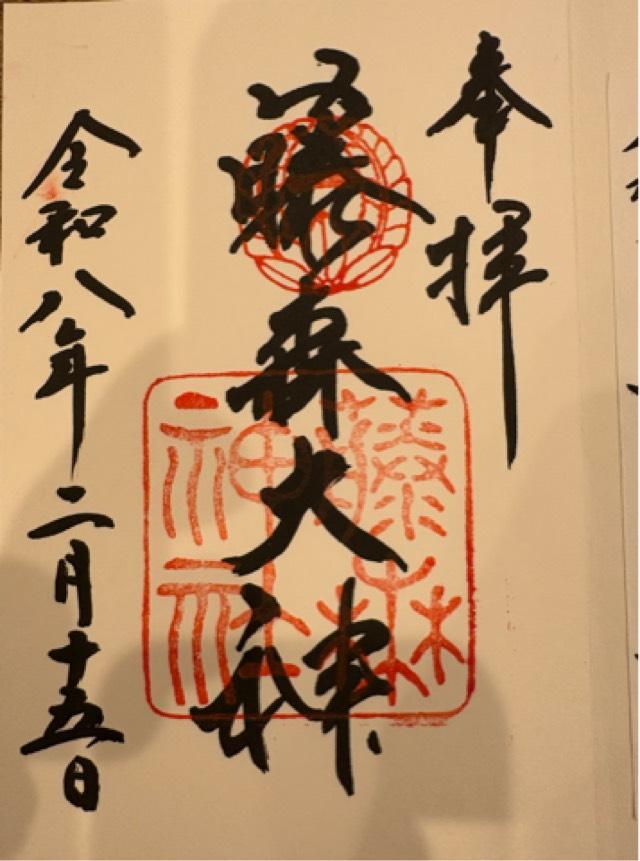 奉拝
藤森大神
藤森
神社
令和八年二月十五日